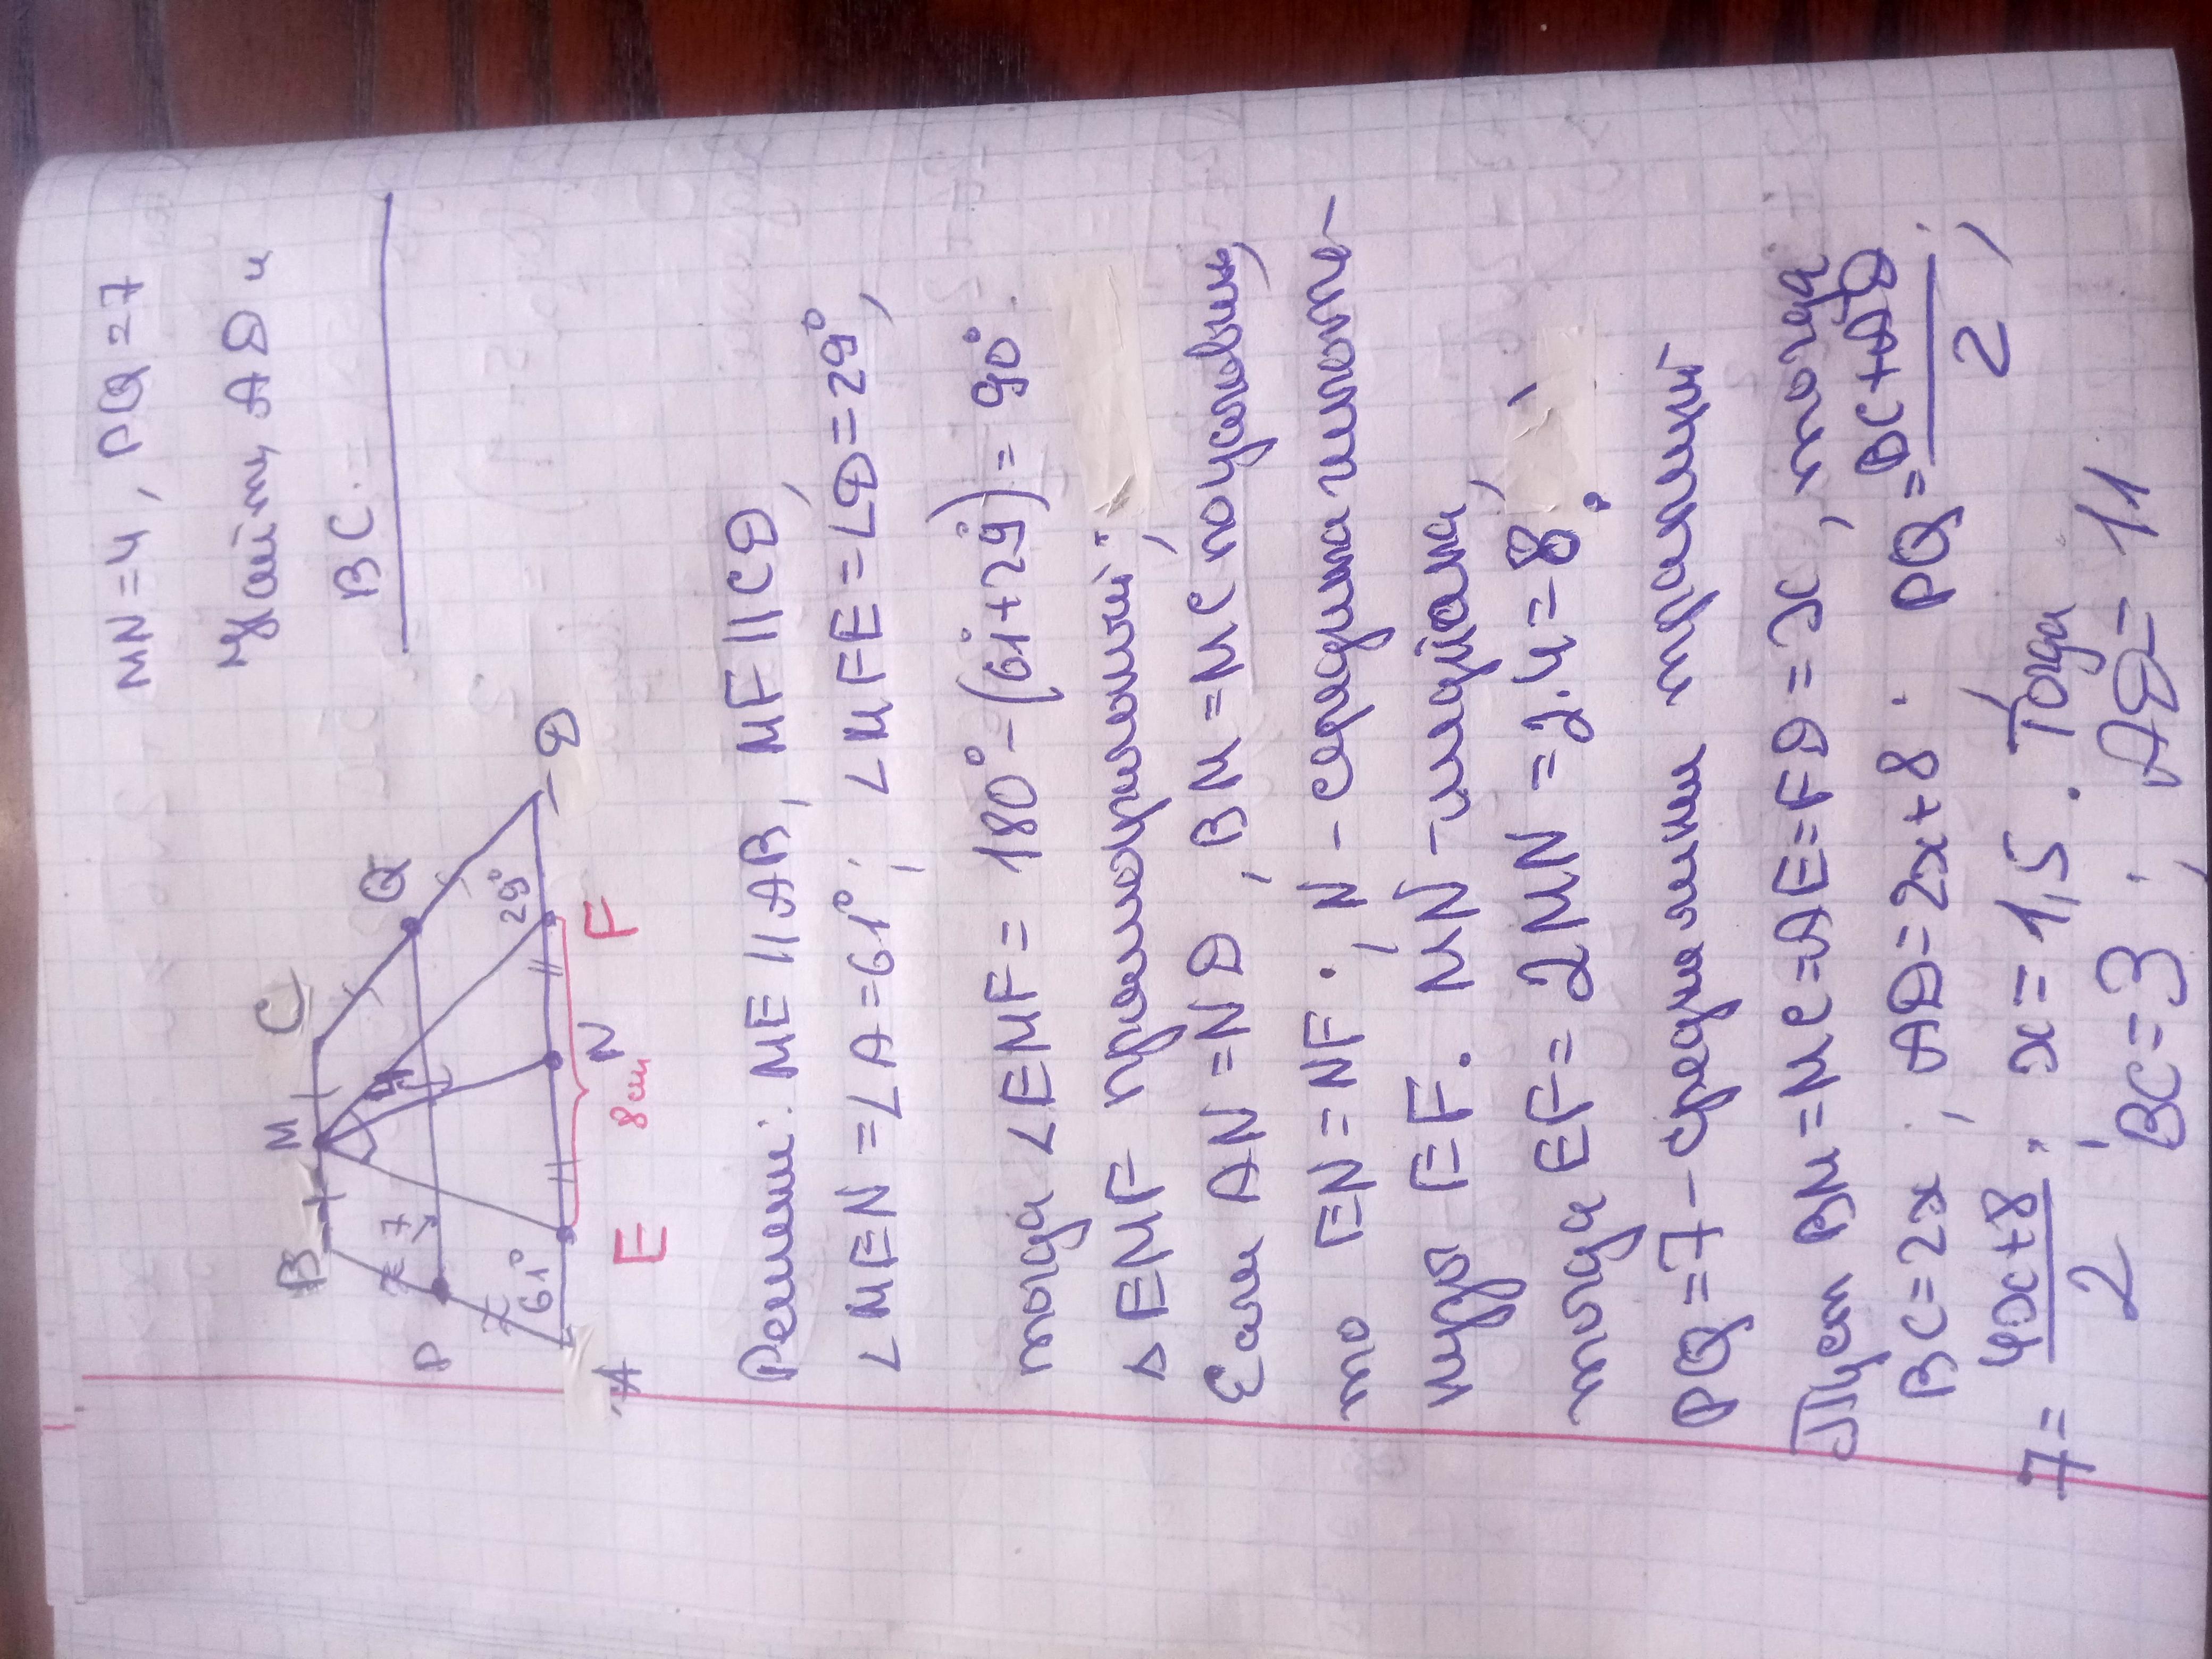 MN=4, PQ=7
Найти AD и
BC.
B
M
C
P
7
4
Q
61°
29°
A
N
D
E
8см
F
Решени: ME || AB, MF || CD,
∠MEN = ∠A = 61°; ∠MFE = ∠D = 29°,
тогда ∠EMF = 180° - (61° + 29°) = 90°
Δ EMF прямоугольный.
Если AN = ND, BM = MC по условию,
то EN = NF; N - середина гипоте-
нузы EF. MN - медіана,
тогда EF = 2MN = 2·4 = 8.
PQ = 7 - средняя линия трапеции
Пусть BM = MC = AE = FD = x, тогда
BC = 2x, AD = 2x + 8. PQ = BC + AD / 2,
7 = 4x + 8 / 2; x = 1,5. Тогда
BC = 3; AD = 11